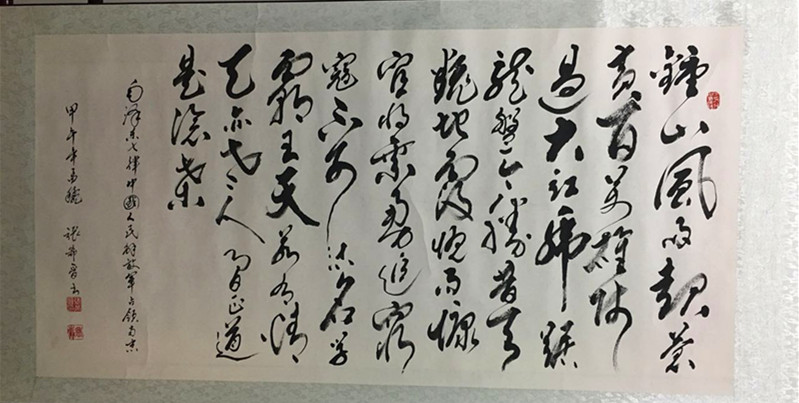 鍾山風雨起蒼
黄百萬雄师
过大江虎踞
龍盤今勝昔天
翻地覆慨而慷
宜将剩勇追窮
寇不可沽名学
霸王天若有情
天亦老人间正道
是滄桑
毛泽东七律中國人民解放軍占领南京
甲午年 书